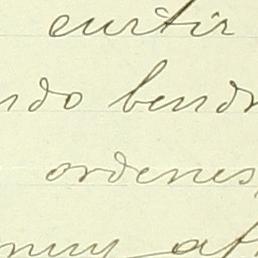 curtir
ndo bendr
ordenes
muy aff